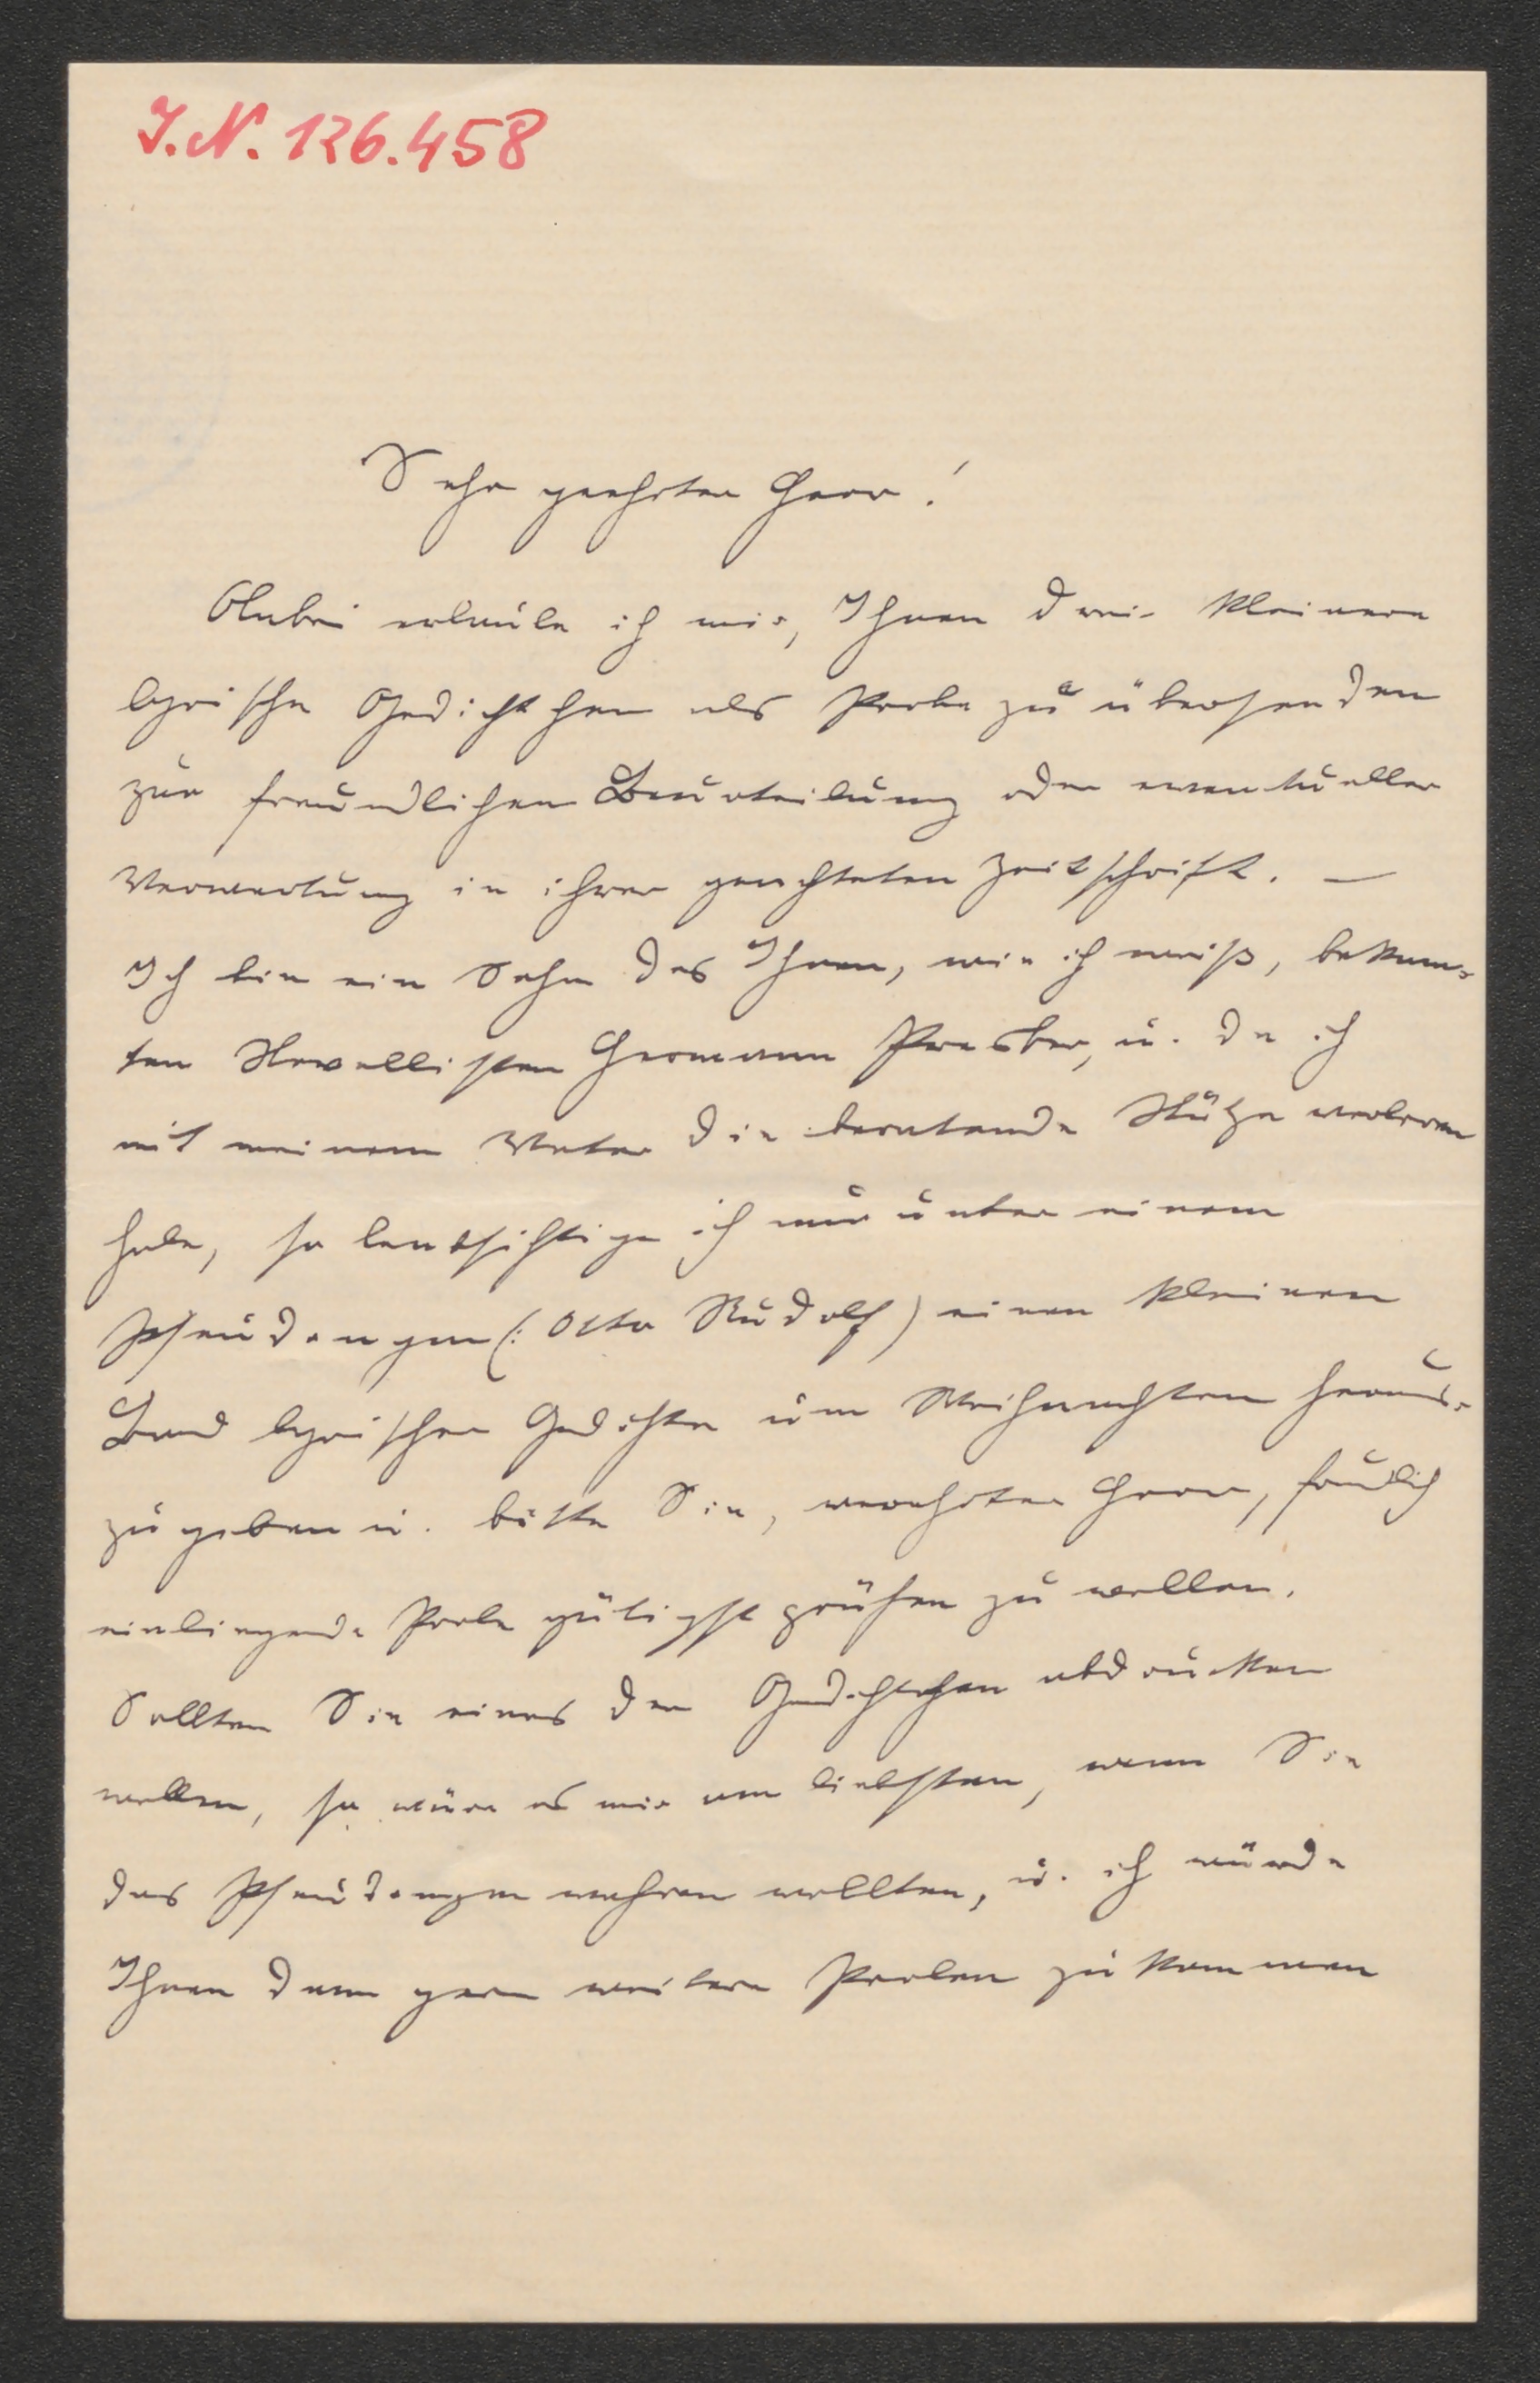 I.N. 126.458
Sehr geehrter Herr!
Anbei erlaube ich mir, Ihnen drei kleinere
lyrische Gedichtchen als Probe zu übersenden
zur freundlichen Beurteilung oder eventueller
Verwertung in ihrer geachteten Zeitschrift. —
Ich bin ein Sohn des Ihnen, wie ich weiß, bekann-
ten Novellisten Hermann Presber, u. da ich
mit meinem Vater die beratende Stütze verloren
habe, so beabsichtige ich nur unter einem
Pseudonym (: Otto Rudolf) einen kleinen
Band lyrischer Gedichte um Weihnachten heraus-
zugeben u. bitte Sie, verehrter Herr, freundlich
einliegende Probe gütigst prüfen zu wollen.
Sollten Sie eines der Gedichtchen abdrucken
wollen, so wäre es mir am liebsten, wenn Sie
das Pseudonym wahren wollten, u. ich würde
Ihnen dann gern weitere Proben zukommen